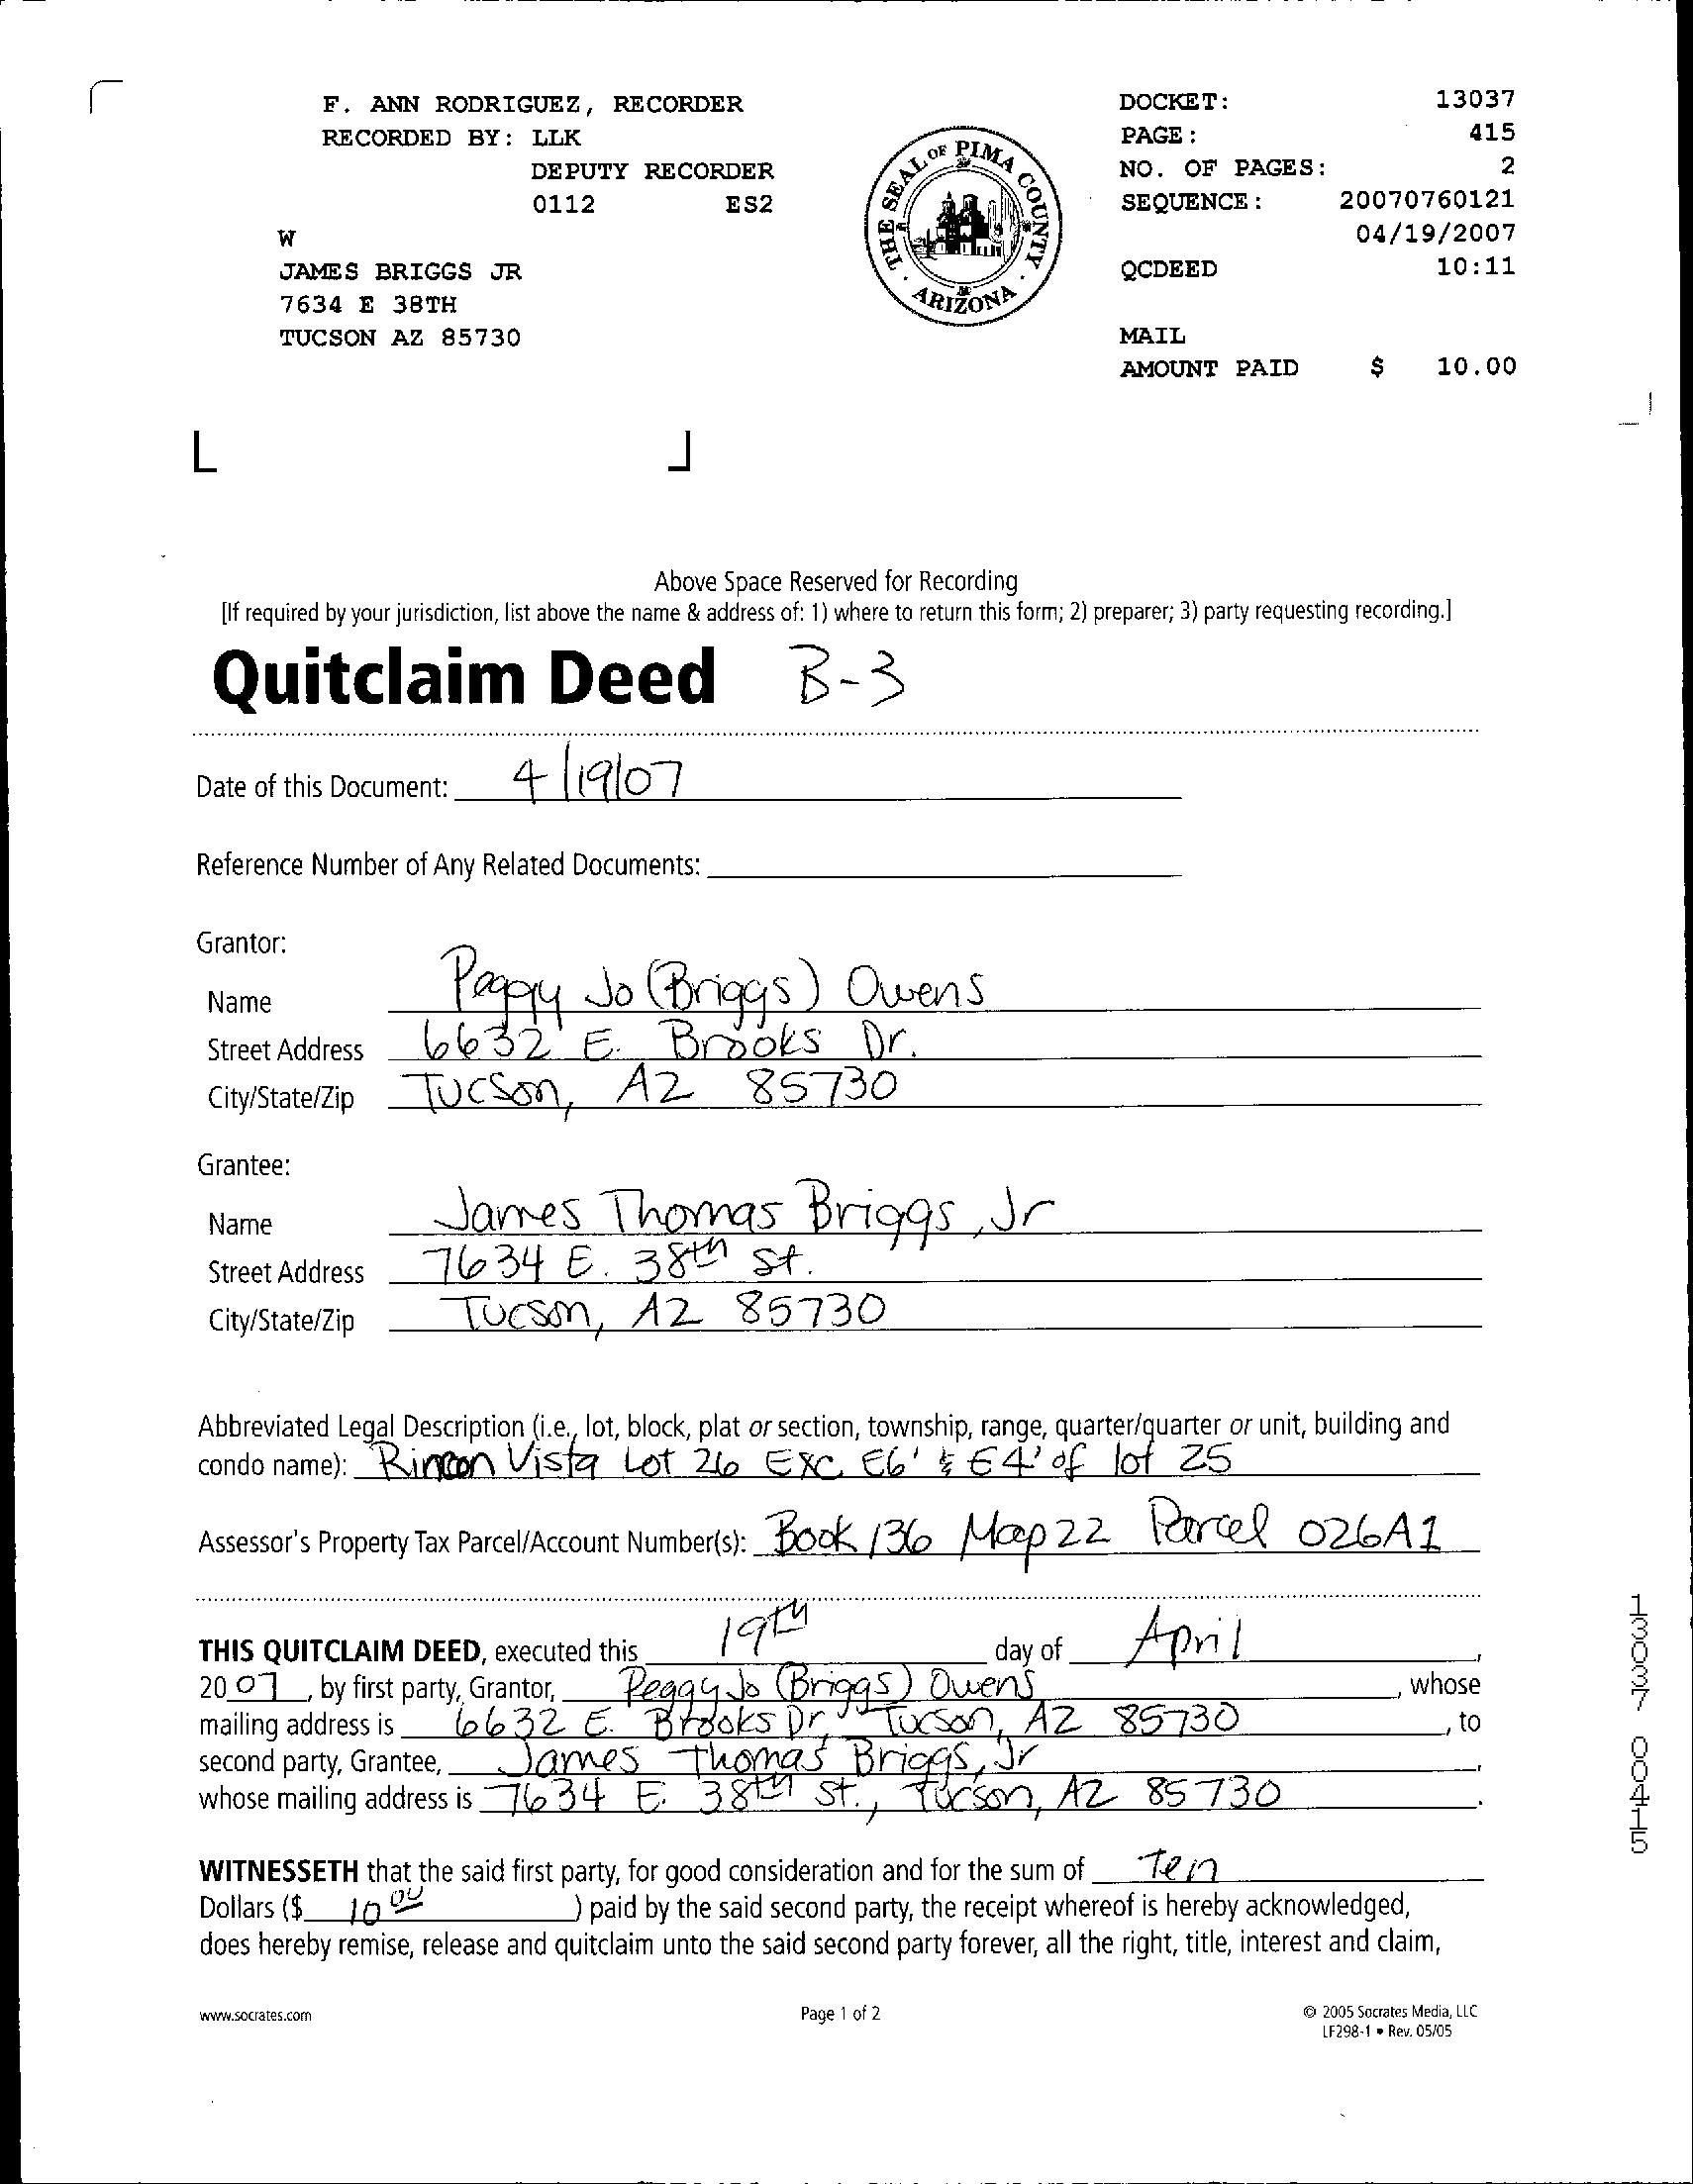 F. ANN RODRIGUEZ, RECORDER
RECORDED BY: LLK
DEPUTY RECORDER
0112 ES2
W
JAMES BRIGGS JR
7634 E 38TH
TUCSON AZ 85730
THE SEAL OF PIMA COUNTY
ARIZONA
DOCKET: 13037
PAGE: 415
NO. OF PAGES: 2
SEQUENCE: 20070760121
04/19/2007
QCDEED 10:11
MAIL
AMOUNT PAID $ 10.00
Above Space Reserved for Recording
[If required by your jurisdiction, list above the name & address of: 1) where to return this form; 2) preparer; 3) party requesting recording.]
Quitclaim Deed B-3
Date of this Document: 4/19/07
Reference Number of Any Related Documents:
Grantor:
Name Peggy Jo (Briggs) Owens
Street Address 6632 E. Brooks Dr.
City/State/Zip Tucson, AZ 85730
Grantee:
Name James Thomas Briggs, Jr
Street Address 7634 E. 38th St.
City/State/Zip Tucson, AZ 85730
Abbreviated Legal Description (i.e., lot, block, plat or section, township, range, quarter/quarter or unit, building and
condo name): Rincon Vista Lot 26 EXC E6' & E4' of lot 25
Assessor's Property Tax Parcel/Account Number(s): Book 136 Map 22 Parcel 026A1
THIS QUITCLAIM DEED, executed this 19th day of April,
2007, by first party, Grantor, Peggy Jo (Briggs) Owens, whose
mailing address is 6632 E. Brooks Dr, Tucson, AZ 85730, to
second party, Grantee, James Thomas Briggs, Jr,
whose mailing address is 7634 E. 38th St., Tucson, AZ 85730.
WITNESSETH that the said first party, for good consideration and for the sum of Ten
Dollars ($ 10 00) paid by the said second party, the receipt whereof is hereby acknowledged,
does hereby remise, release and quitclaim unto the said second party forever, all the right, title, interest and claim,
www.socrates.com Page 1 of 2 © 2005 Socrates Media, LLC
LF298-1 • Rev. 05/05
13037 00415